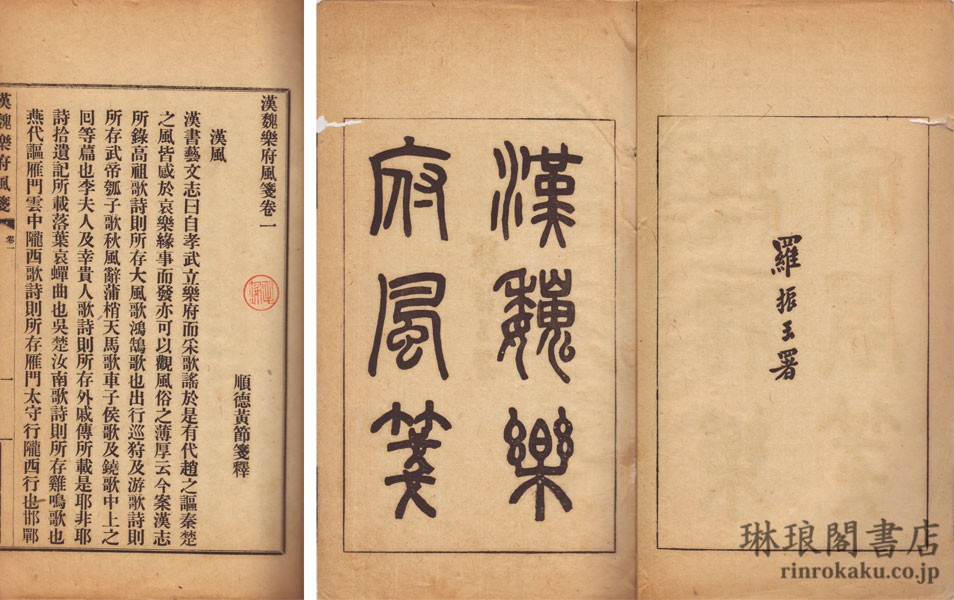 漢魏樂府風箋卷一
順德黃節箋釋
漢風
漢書藝文志曰自孝武立樂府而采歌謠於是有代趙之謳秦楚
之風皆感於哀樂緣事而發亦可以觀風俗之薄厚云今案漢志
所錄高祖歌詩則所存大風歌鴻鵠歌也出行巡狩及游歌詩則
所存武帝瓠子歌秋風辭蒲梢天馬歌車子侯歌及鐃歌中上之
回等篇也李夫人及幸貴人歌詩則所存外戚傳所載是耶非耶
詩拾遺記所載落葉哀蟬曲也吳楚汝南歌詩則所存雞鳴歌也
燕代謳雁門雲中隴西歌詩則所存雁門太守行隴西行也邯鄲
漢魏樂府風箋
卷一
一
漢魏樂
府風箋
羅振玉署
琳琅閣書店
rinrokaku.co.jp